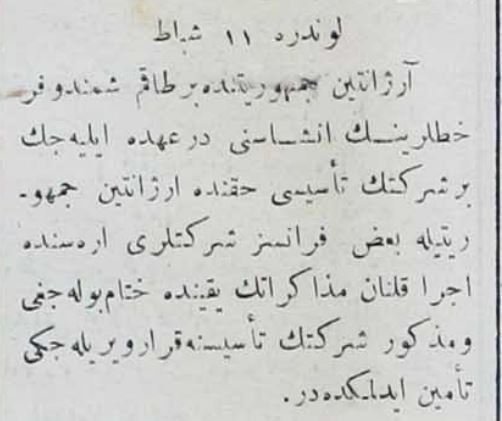 لوندره ۱۱ شباط
آرژانتین جمهوریتنده برطاقم شمندوفر
خطلرینـــك انشـــاسنی درعهده ایلیه‌جك
برشركتك تأسیسی حقنده ارژانتین جمهو-
ریتیله بعض فرانسز شركتلری ارەسنده
اجرا قلنان مذاكراتك یقینده ختام‌بوله‌جغی
ومذكور شركتك تأسیسنه‌قرارویریله‌جكی
تأمین ایدلمكده‌در.